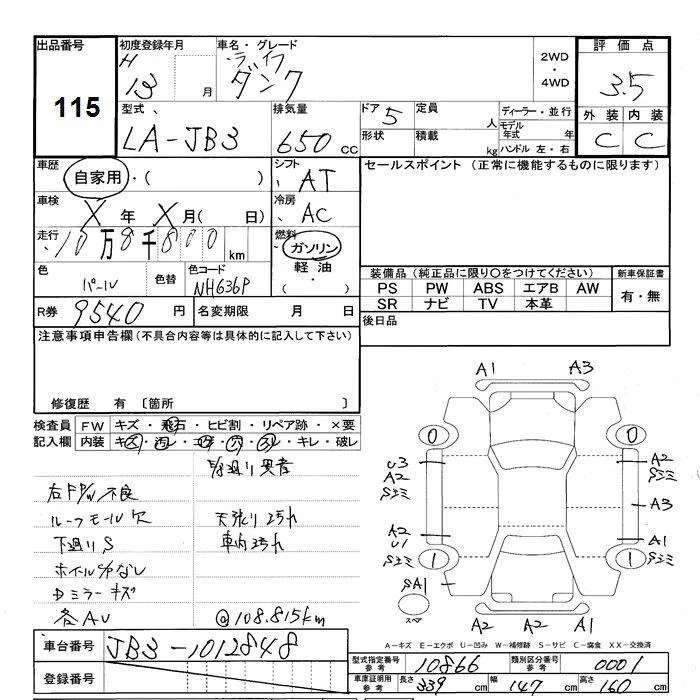 出品番号
115
初度登録年月
H
13 月
車名・グレード
ライフ
ダンク
2WD
・
4WD
評価点
3.5
外装 内装
C C
型式
LA-JB3
排気量
650 CC
ドア 5
定員 人
ディーラー・並行
形状
積載 kg
モデル年式 年
ハンドル 左・右
車歴
自家用・( )
シフト
AT
セールスポイント (正常に機能するものに限ります)
車検
X 年 X 月( 日)
冷房
AC
走行
10万8千800 km
燃料
ガソリン
・
軽油
・
色
パール
色替
色コード
NH636P
装備品 (純正品に限り○をつけてください)
PS PW ABS エアB AW
SR ナビ TV 本革
新車保証書
有・無
R券 9540 円
名変期限 月 日
後日品
注意事項申告欄 (不具合内容等は具体的に記入して下さい)
修復歴 有 〔箇所 〕
検査員
記入欄
FW キズ・飛石・ヒビ割・リペア跡・×要
内装
キレ・破レ
右FP/W不良
ルーフモール欠
天張り汚れ
下廻りS
車内汚れ
Dミラーキズ
各AU
@108.815km
A1 A3
0 0
U3
A2
Sエミ
A2
Sエミ
A3
A2
U1
Sエミ
A1
Sエミ
1 1
SA1
スペア
A2 A2 A1
A-キズ E-エクボ U-凹み W-補修跡 S-サビ C-腐食 XX-交換済
車台番号 JB3-1012848
登録番号
型式指定番号
参考
10866
類別区分番号
参考
0001
車庫証明用
参考
長さ 339 cm 幅 147 cm 高さ 160 cm